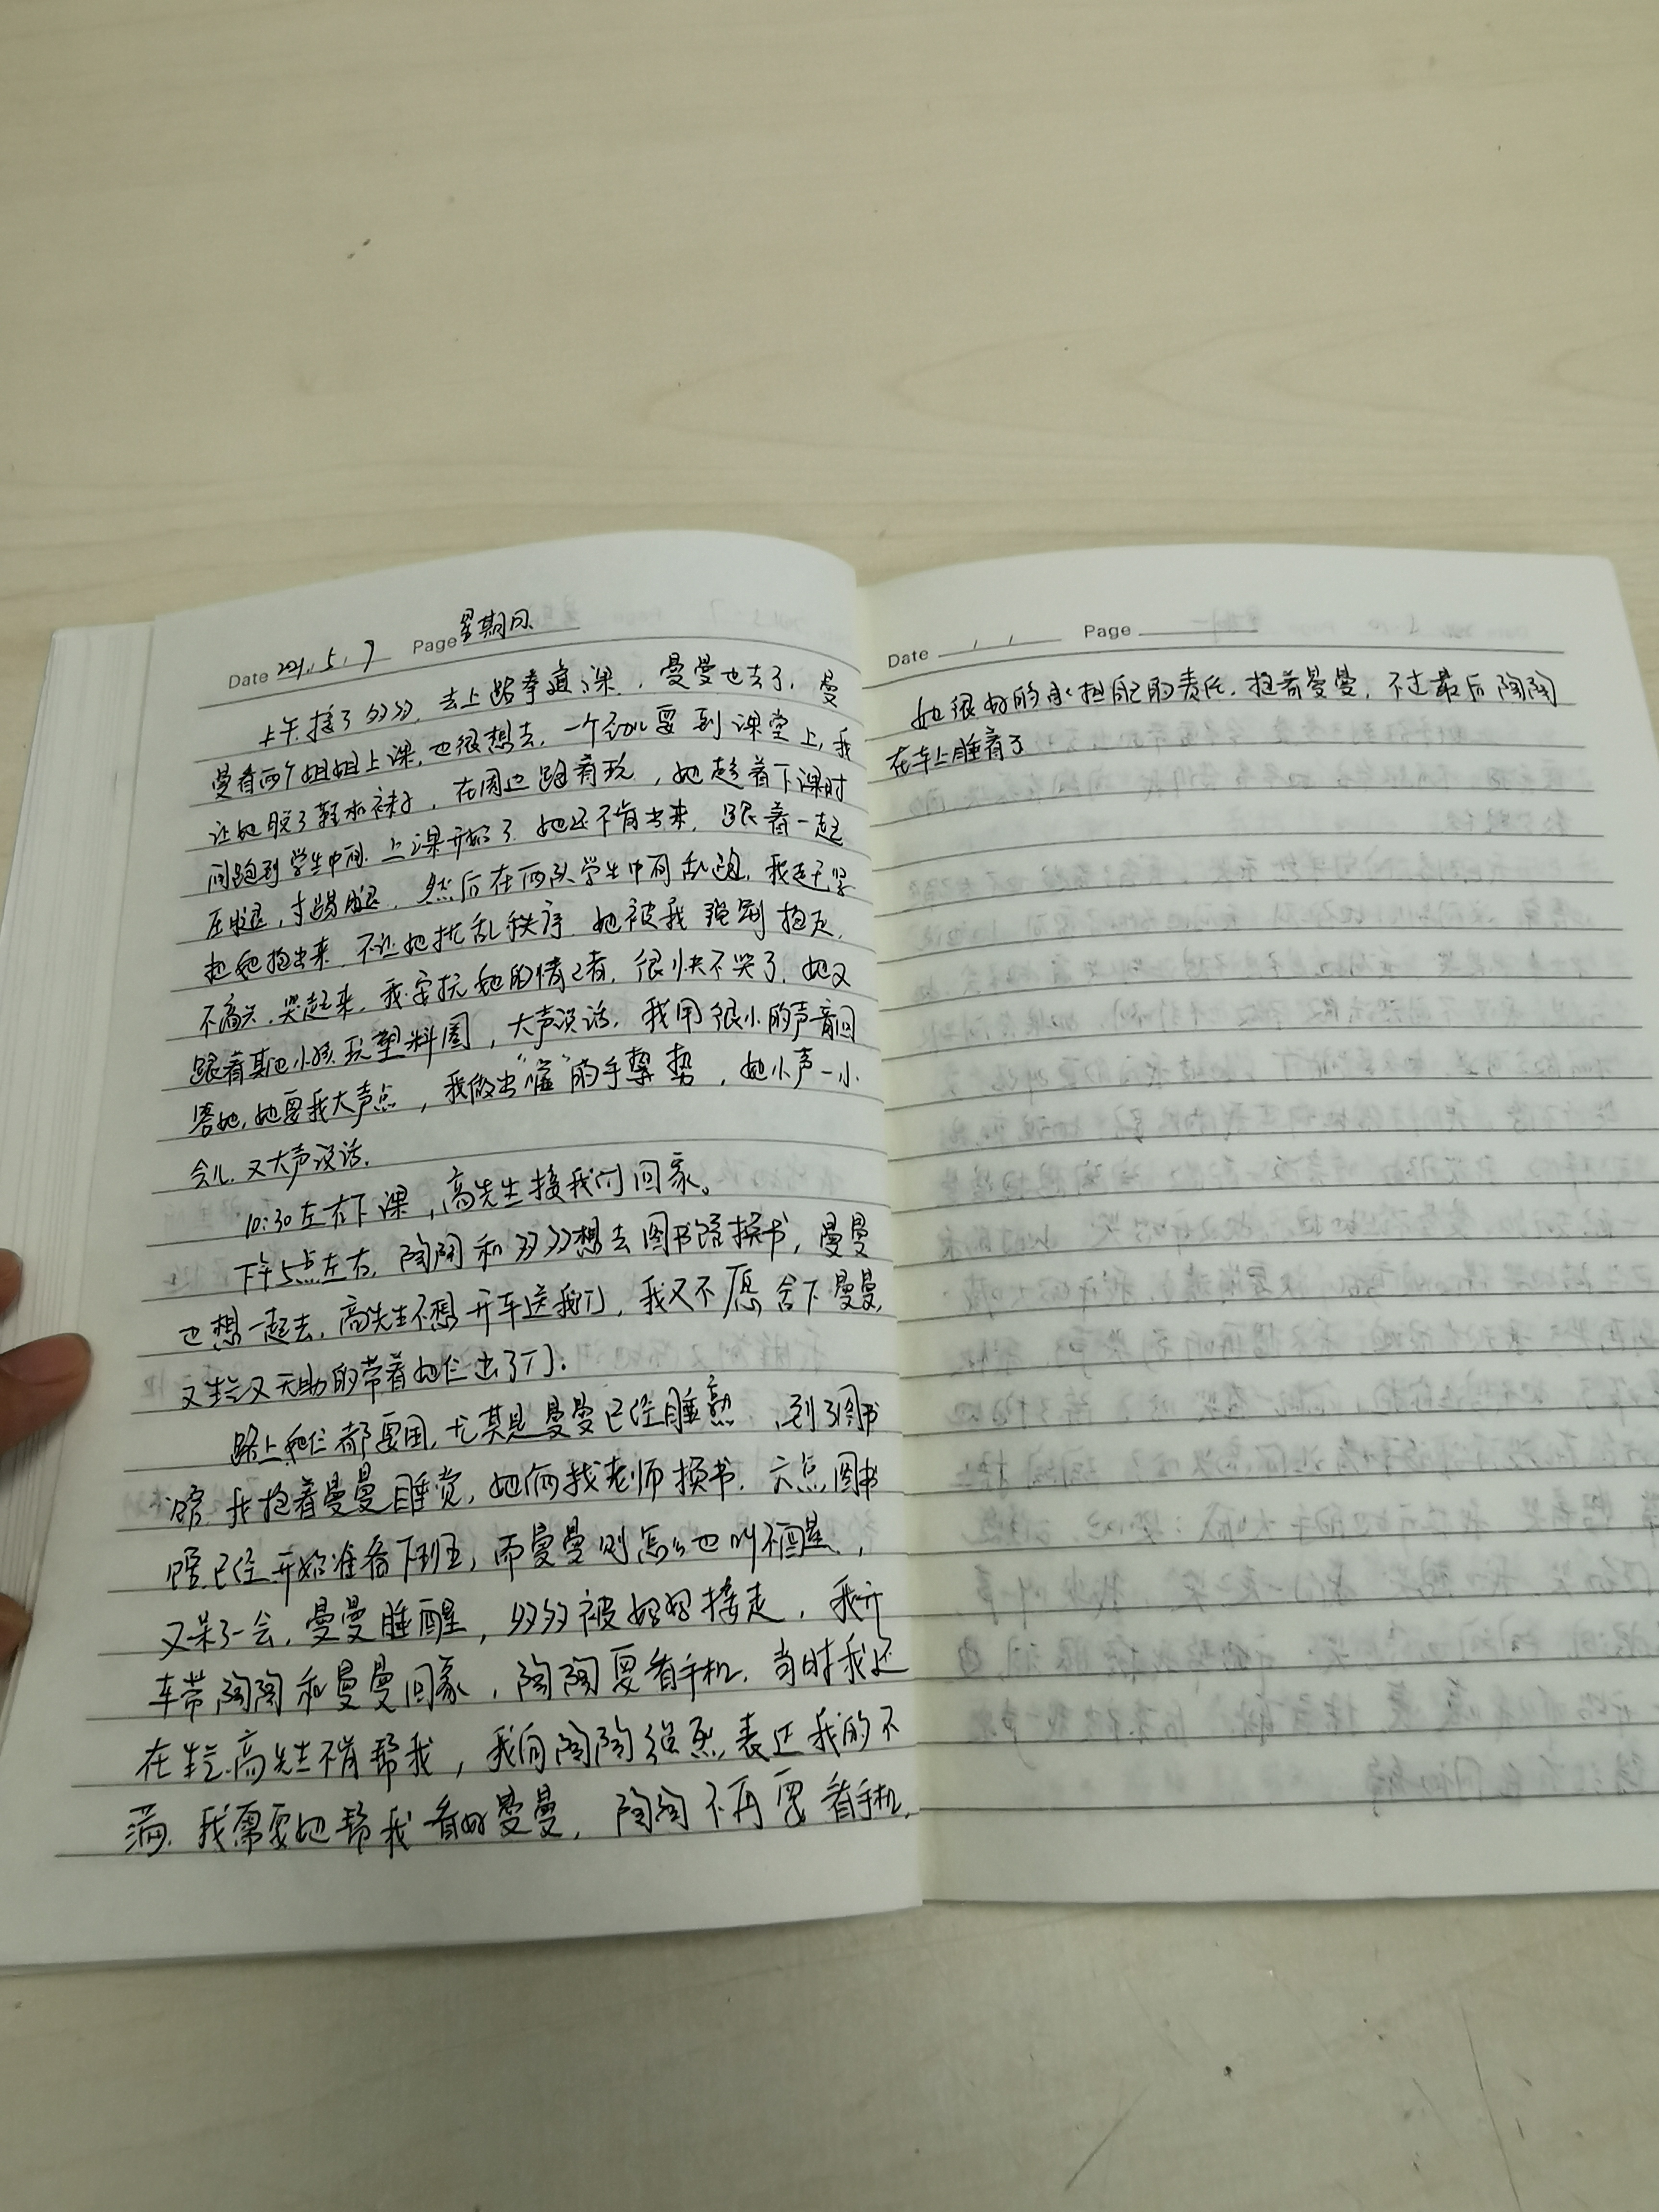 Date 2021.5.7 Page 星期日
上午接了多多，去上跆拳道课，曼曼也去了，曼
曼看两个姐姐上课，也很想去，一个劲儿要到课堂上，我
让她脱了鞋和袜子，在周边跑着玩，她趁着下课时
间跑到学生中间，上课开始了，她还不肯出来，跟着一起
压腿，才踢腿，然后在两队学生中间乱跑，我赶紧
把她抱出来，不让她扰乱秩序，她被我强制抱走，
不高兴，哭起来，我安抚她的情绪，很快不哭了，她又
跟着其他小孩玩塑料圈，大声说话，我用很小的声音回
答她，她要我大声点，我做出“嘘”的手势，她小声一小
会儿，又大声说话。
10:30左右下课，高先生接我们回家。
下午5点左右，陶陶和多多想去图书馆换书，曼曼
也想一起去，高先生不想开车送我们，我又不愿舍下曼曼，
又生气又无助的带着她仨出了门。
路上她仨都要困，尤其是曼曼已经睡熟，到了图书
馆，我抱着曼曼睡觉，她俩找老师换书，六点图书
馆已经开始准备下班，而曼曼则怎么也叫不醒，
又呆了一会，曼曼睡醒，多多被妈妈接走，我开
车带陶陶和曼曼回家，陶陶要看手机，当时我还
在生气高先生不肯帮我，我向陶陶强烈表达我的不
满，我需要她帮我看好曼曼，陶陶不再要看手机，
Date / / Page
她很好的承担自己的责任，抱着曼曼，不过最后陶陶
在车上睡着了